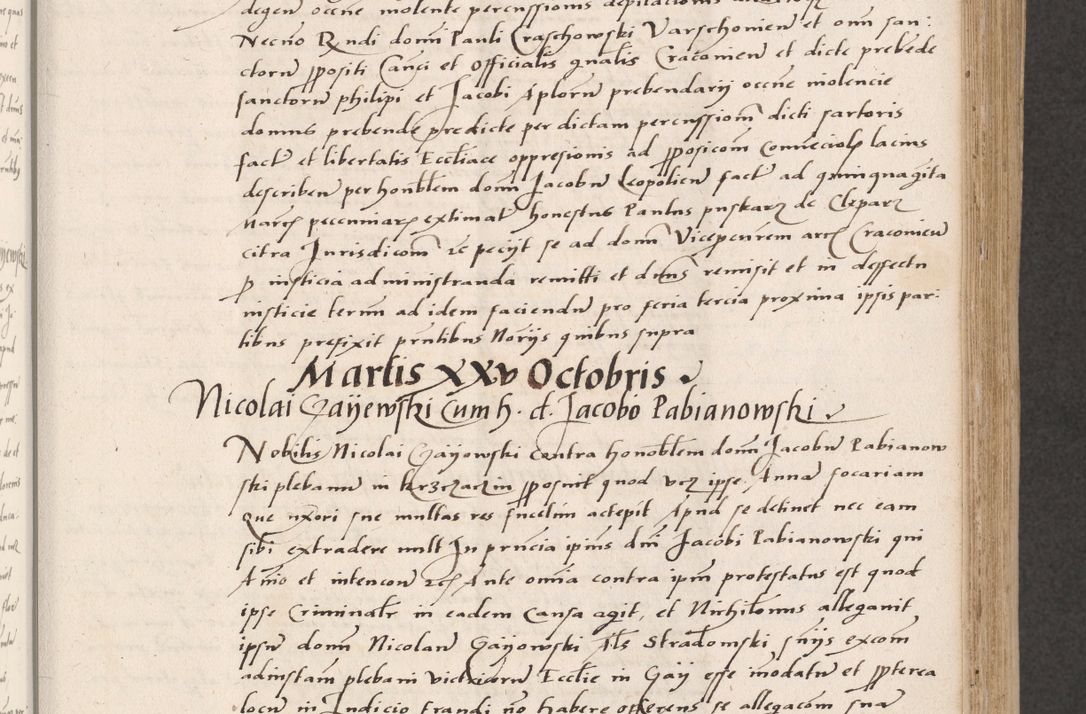 degen occne molente percussionis depilacionis
Necno Rndi domi Pauli Craschowski Varschomien et omi san:
ctoru ppositi Canci et Officialis gnalis Cracomien et dicte prebede
sanctoru philipi et Jacobi Aplorn prebendarij occne molencie
domus prebende predicte per dictam percussiom dicti sartoris
fact et libertatis Eccliace oppresionis ad pposicom
describen per honblem domi Jacobu Leopolien fact ad quinquagita
marcs peccuniars extimat honestus Paulus puskarz de Cleparz
citra Jurisdicom rc pecijt se ad domi Viceperem arcs Cracomien
p iusticia administranda remitti et dnus remisit et in deffectu
iusticie termi ad idem faciendu pro feria tercia proxima ipsis par:
tibus prefixit prntibus Norijs quibus supra
Martis XXV Octobris
Nicolai Gaijewski Cum h. d. Jacobo Pabianowski
Nobilis Nicolai Gaijowski contra honoblem domi Jacobu Pabianow
ski plebanu in pposuit quod vcz ipse Anna focariam
que uxori sue multas res accepit Apud se detinet nec eam
sibi extradere vult In prncia ipius dni Jacobi Pabianowski qui
Anio et intencon rcs Ante omia contra ipm protestatus est quod
ipse Criminalr in eadem Causa agit, et Nichilomus allegauit
ipsu domi Nicolau Gaijowski Als Stradomski snijs excom
adinstam plebani Ecclie in Gaij esse inodatu et ppterea
locu in Judicio standi no habere offerens se allegacom sua